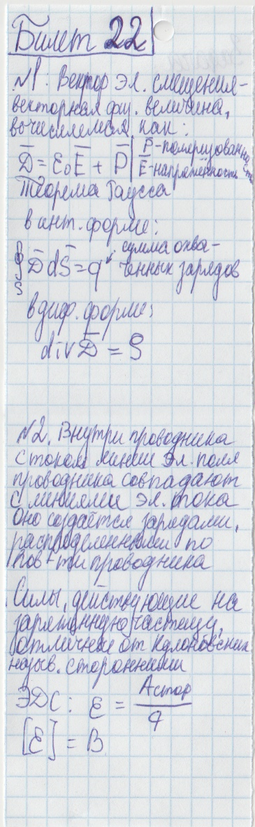 Билет 22
№1. Вектор эл. смещения-
векторная физ. величина,
вычисляемая как:
D̅ = ε₀E̅ + P̅ | P̅-поляризованность
E̅-напряжённость
Теорема Гаусса
в инт. форме:
∮ D̅ dS̅ = q сумма охва-
S ченных зарядов
в диф. форме:
div D̅ = ρ
№2. Внутри проводника
с током линии эл. поля
проводника совпадают
с линиями эл. тока
Оно создаётся зарядами,
распределёнными по
пов-ти проводника
Силы, действующие на
заряженную частицу,
отличные от кулоновских
назыв. сторонними
ЭДС: ε = Aстор / q
[ε] = В